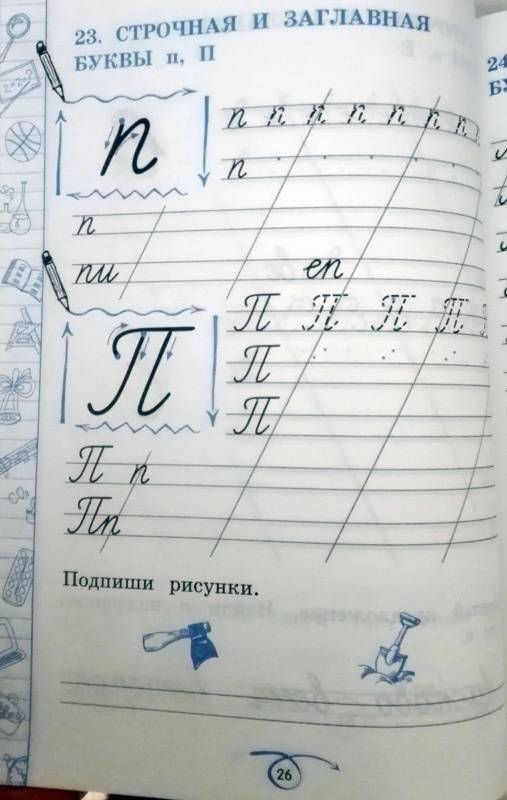 23. СТРОЧНАЯ И ЗАГЛАВНАЯ
БУКВЫ п, П
п
п п п п п п п
п
п
пи еп
П
П П П П
П
П
П п
Пп
Подпиши рисунки.
26
24